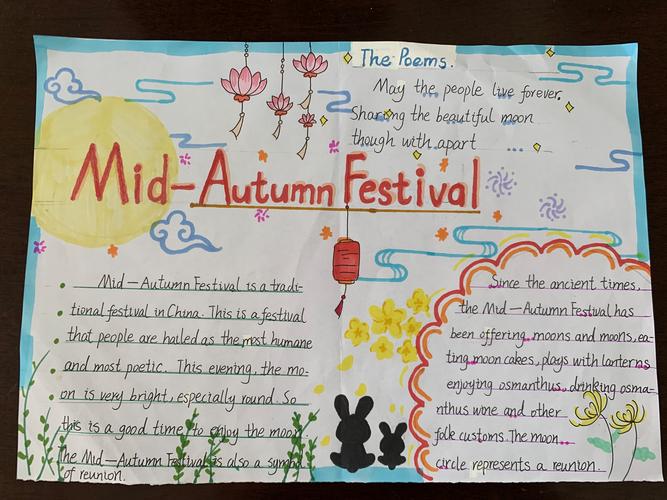 The Poems.
May the people live forever,
Sharing the beautiful moon
though with apart
Mid-Autumn Festival
Mid-Autumn Festival is a tradi-
tional festival in China. This is a festival
that people are hailed as the most humane
and most poetic. This evening, the mo-
on is very bright, especially round. So
this is a good time to enjoy the moon.
the Mid-Autumn Festival is also a symbol
of reunion.
Since the ancient times,
the Mid-Autumn Festival has
been offering moons and moons, ea-
ting moon cakes, plays with lanterns
enjoying osmanthus, drinking osma-
nthus wine and other
folk customs. The moon
circle represents a reunion.